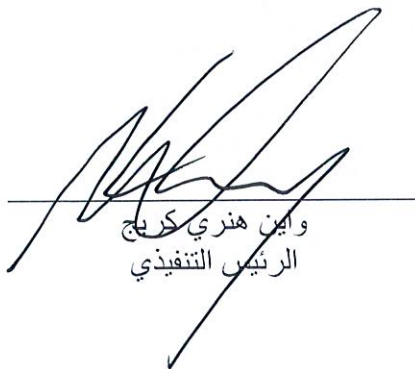 واين هنري كريج
الرئيس التنفيذي